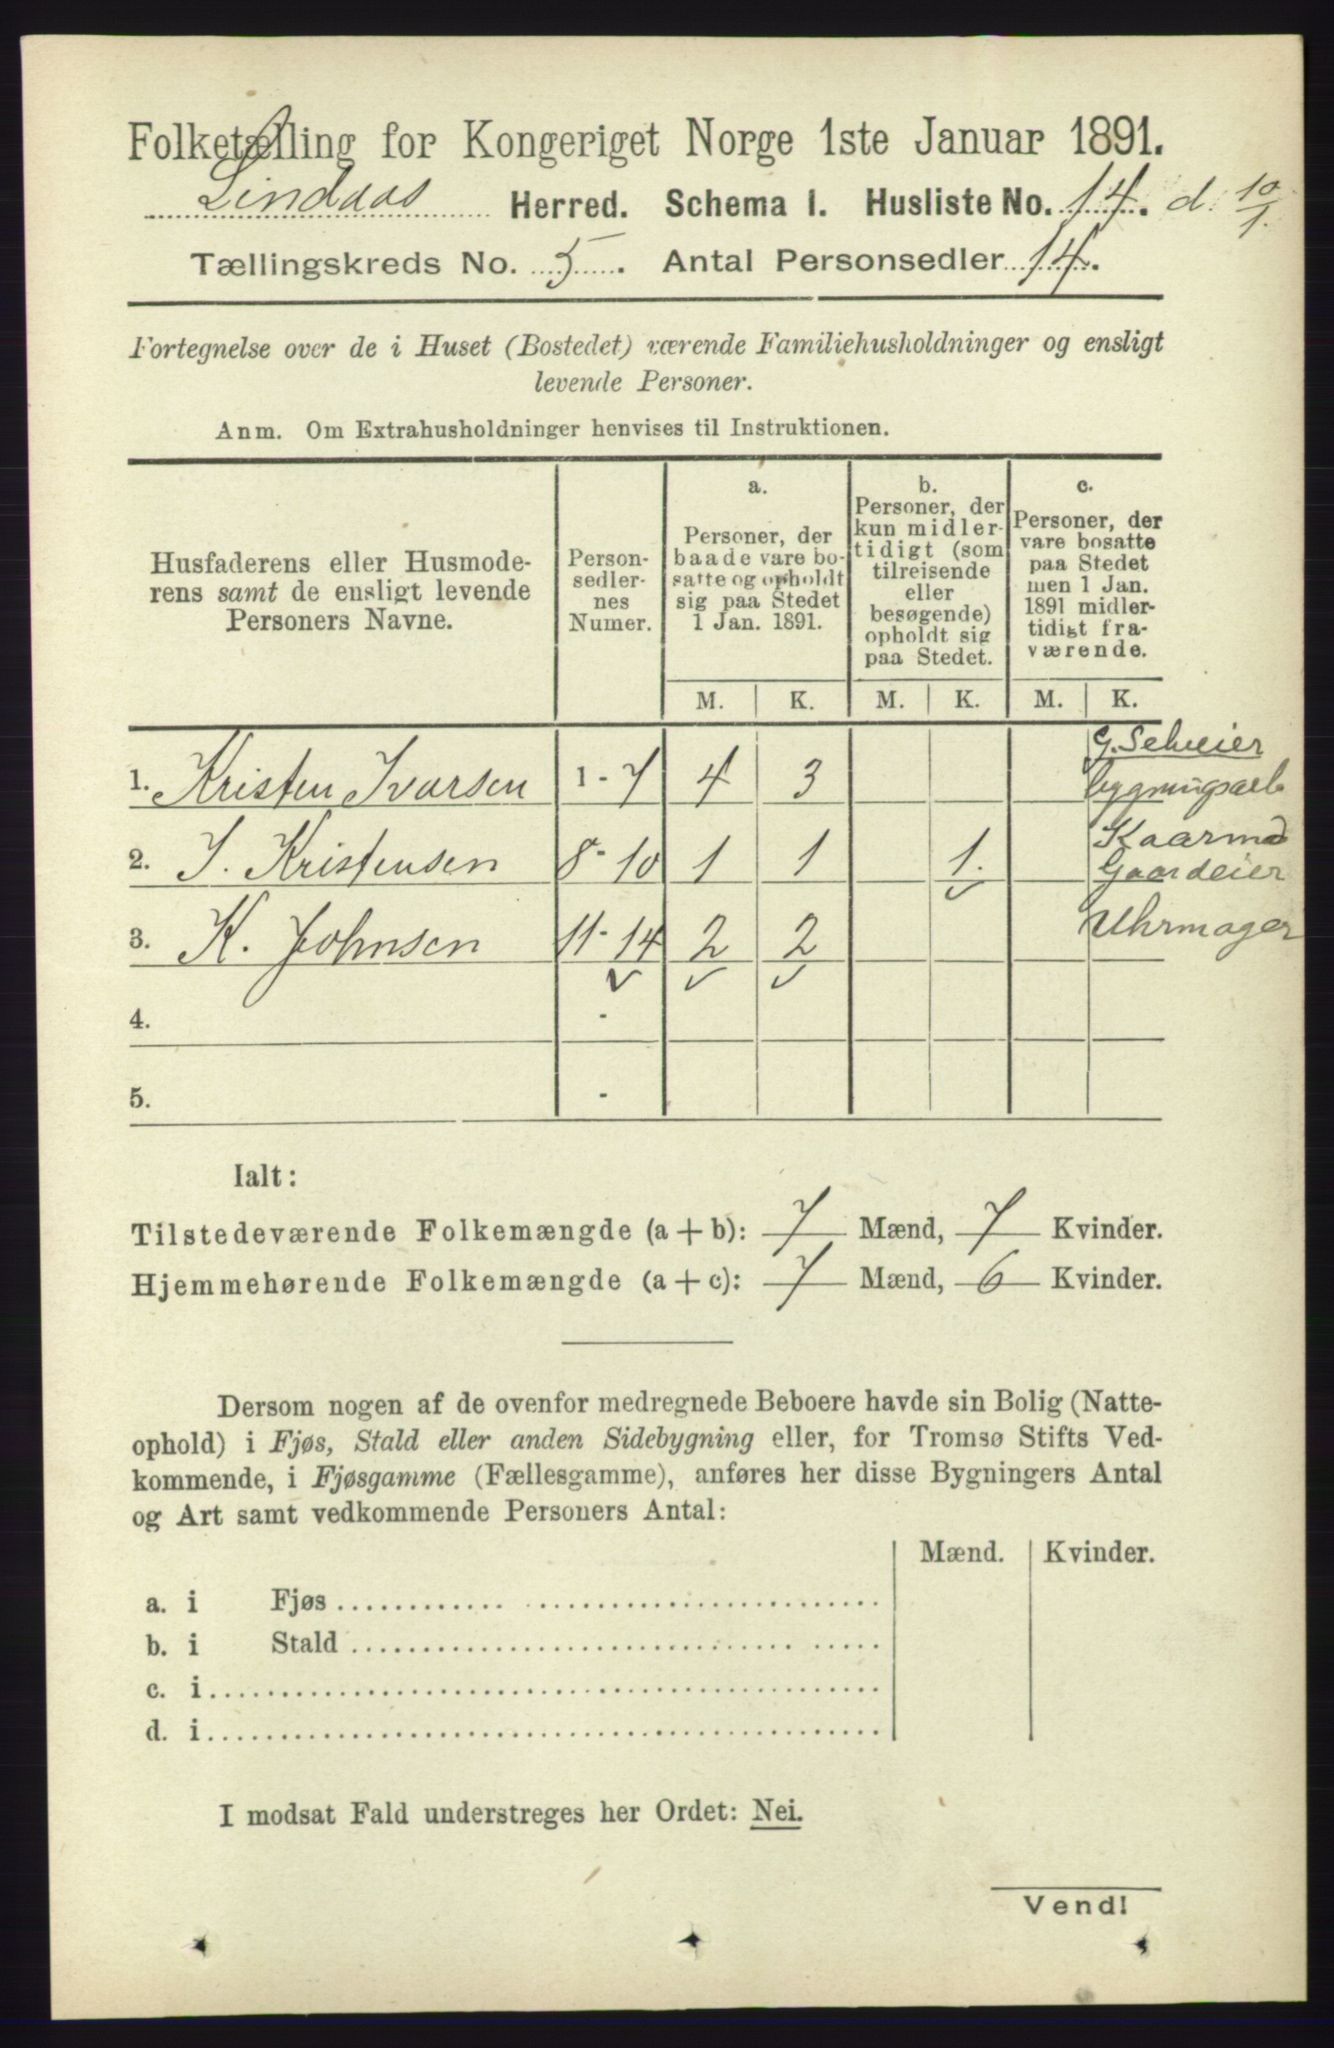 Folketælling for Kongeriget Norge 1ste Januar 1891.
Lindaas Herred. Schema I. Husliste No. 14. d. 10/1.
Tællingskreds No. 5. Antal Personsedler 14.
Fortegnelse over de i Huset (Bostedet) værende Familiehusholdninger og ensligt
levende Personer.
Anm. Om Extrahusholdninger henvises til Instruktionen.
Husfaderens eller Husmode-
rens samt de ensligt levende
Personers Navne.
Person-
sedler-
nes
Numer.
a.
Personer, der
baade vare bo-
satte og opholdt
sig paa Stedet
1 Jan. 1891.
b.
Personer, der
kun midler-
tidigt (som
tilreisende
eller
besøgende)
opholdt sig
paa Stedet.
c.
Personer, der
vare bosatte
paa Stedet
men 1 Jan.
1891 midler-
tidigt fra-
værende.
M. K. M. K. M. K.
G. Selveier
1. Kristen Ivarsen 1 - 7 4 3 bygningsarb
Kaarmd
2. J. Kristensen 8 - 10 1 1 1. Gaardeier
3. K. Johnsen 11 - 14 2 2 Uhrmager
4. -
5. -
Ialt:
Tilstedeværende Folkemængde (a + b): 7 Mænd, 7 Kvinder.
Hjemmehørende Folkemængde (a + c): 7 Mænd, 6 Kvinder.
Dersom nogen af de ovenfor medregnede Beboere havde sin Bolig (Natte-
ophold) i Fjøs, Stald eller anden Sidebygning eller, for Tromsø Stifts Ved-
kommende, i Fjøsgamme (Fællesgamme), anføres her disse Bygningers Antal
og Art samt vedkommende Personers Antal:
Mænd. Kvinder.
a. i Fjøs
b. i Stald
c. i
d. i
I modsat Fald understreges her Ordet: Nei.
Vend!